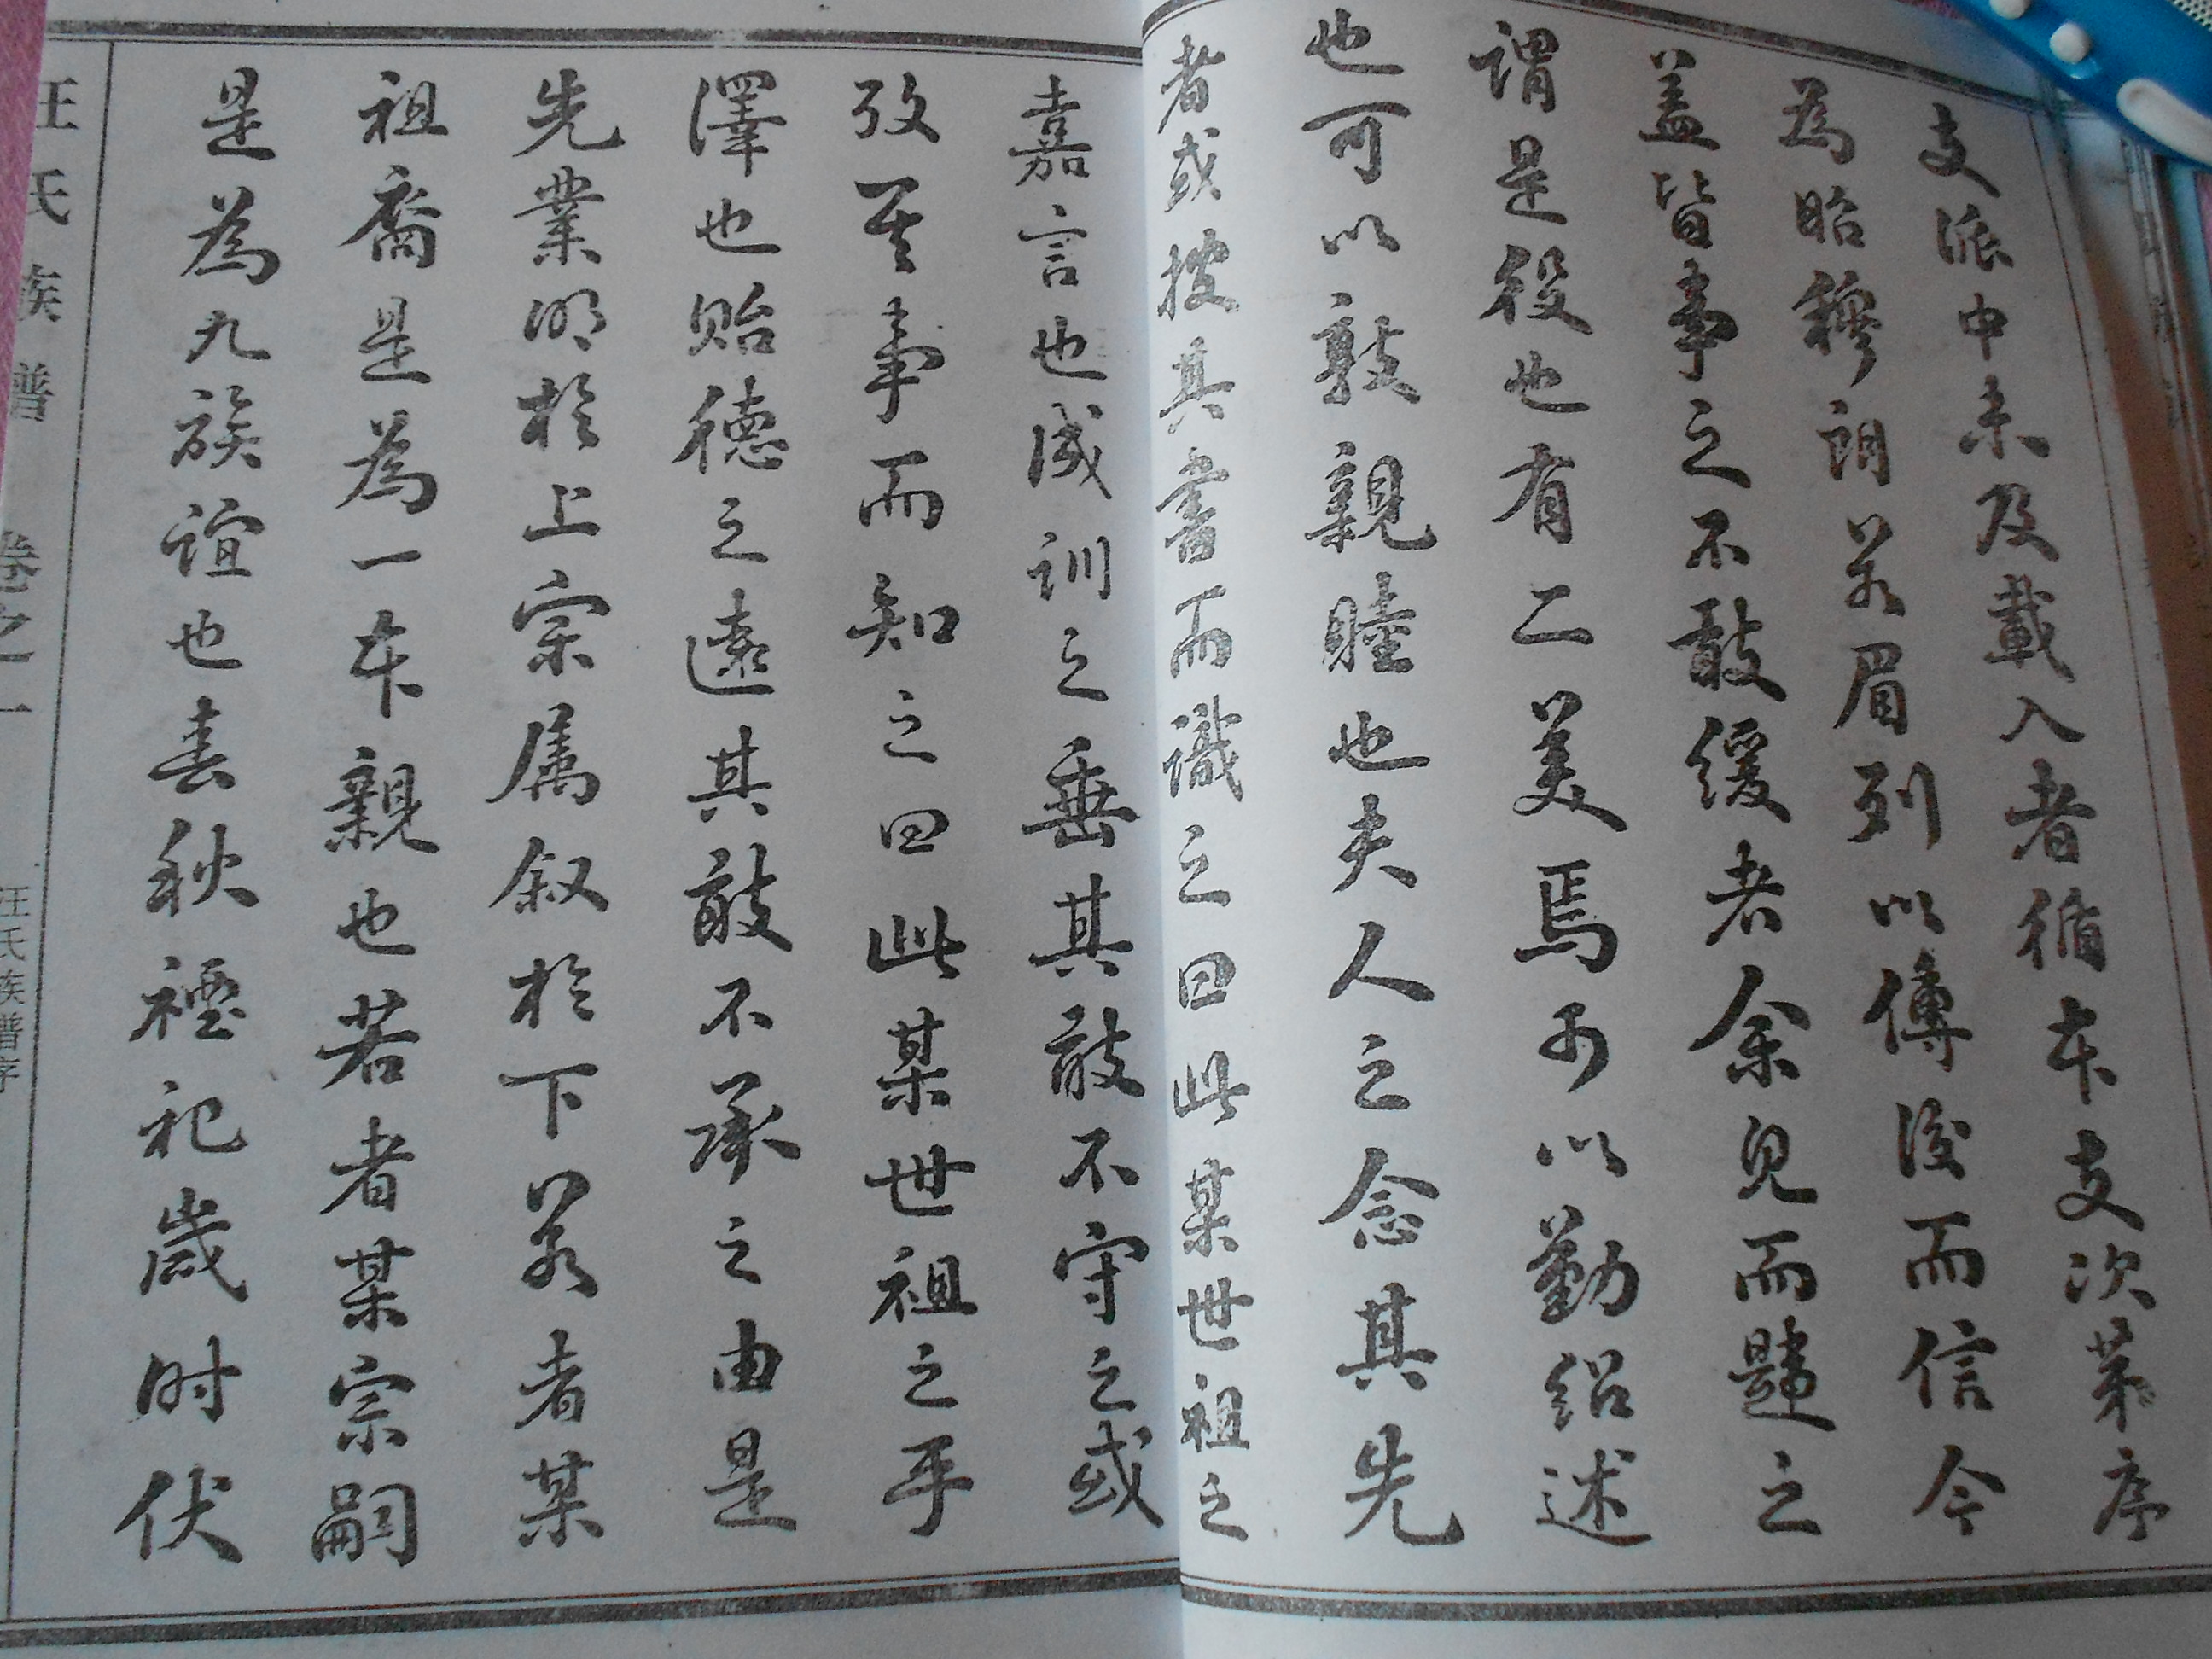 支派中未及載入者循本支次第序
為昭穆朗若眉列以傳後而信今
蓋皆事之不敢緩者余見而韙之
謂是役也有二美焉可以勤紹述
也可以敦親睦也夫人之念其先
者或披其書而識之曰此某世祖之
嘉言也咸訓之垂其敢不守之或
攷其事而知之曰此某世祖之手
澤也貽德之遠其敢不承之由是
先業明於上宗屬叙於下若者某
祖裔是為一本親也若者某宗嗣
是為九族誼也春秋禋祀歲时伏
汪氏族譜 卷之一 汪氏族譜序